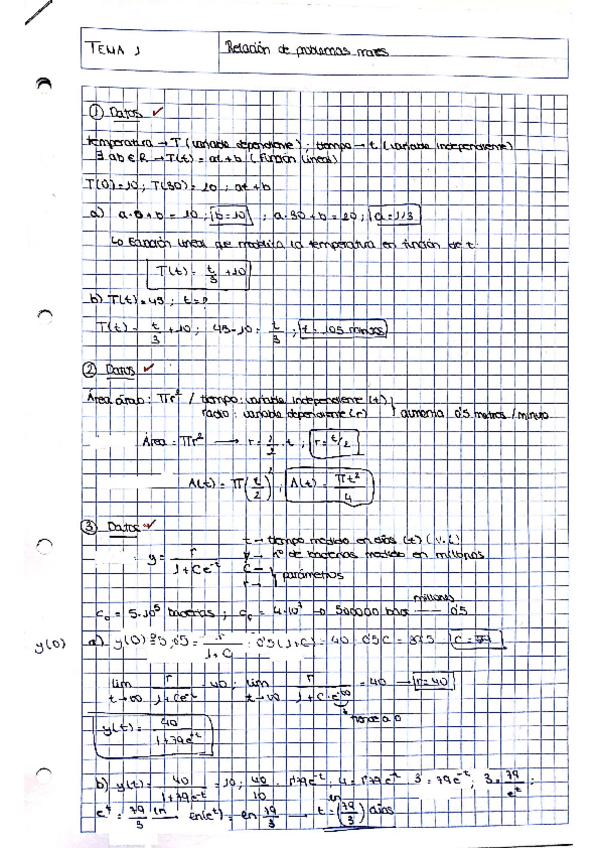 TEMA 1 Relación de problemas mates
① Datos ✓
temperatura → T (variable dependiente); tiempo → t (variable independiente)
∃ ab ∈ R → T(t) = at + b (Función lineal)
T(0) = 10; T(30) = 20; at + b
a) a·0 + b = 10; b = 10; a·30 + b = 20; a = 1/3
↳ Ecuación lineal que modeliza la temperatura en función de t.
T(t) = t/3 + 10
b) T(t) = 45; t = ?
T(t) = t/3 + 10; 45 - 10 = t/3; t = 105 minutos
② Datos ✓
Área círculo: πr² / tiempo: variable independiente (t)
radio: variable dependiente (r) } aumenta 0'5 metros / minuto
Área = πr² → r = 1/2 · t; r = t/2
A(t) = π(t/2)²; A(t) = πt²/4
③ Datos ✓
y = r/(1 + Ce^-t)
t → tiempo medido en días (t) (v.i.)
y → nº de bacterias medido en millones
C →
r → } parámetros
millones
c₀ = 5·10⁵ bacterias; = 4·10⁷ → 500000 → 0'5
y(0) a) y(0) 0'5; 0'5 = r/(1+C); 0'5(1+C) = 40; 0'5C = 39'5 C = 79
lim t→∞ r/(1+Ce^-t) = 40; lim t→∞ r/(1+C·e^-∞) = 40 → r = 40
tiende a 0
y(t) = 40/(1+79e^-t)
b) y(t) = 40/(1+79e^-t) = 10; 40/10 = 1+79e^-t; 4 = 1+79e^-t; 3 = 79e^-t; 3 = 79/e^t;
e^t = 79/3 ln → ln(e^t) = ln 79/3 → t = ln(79/3) días